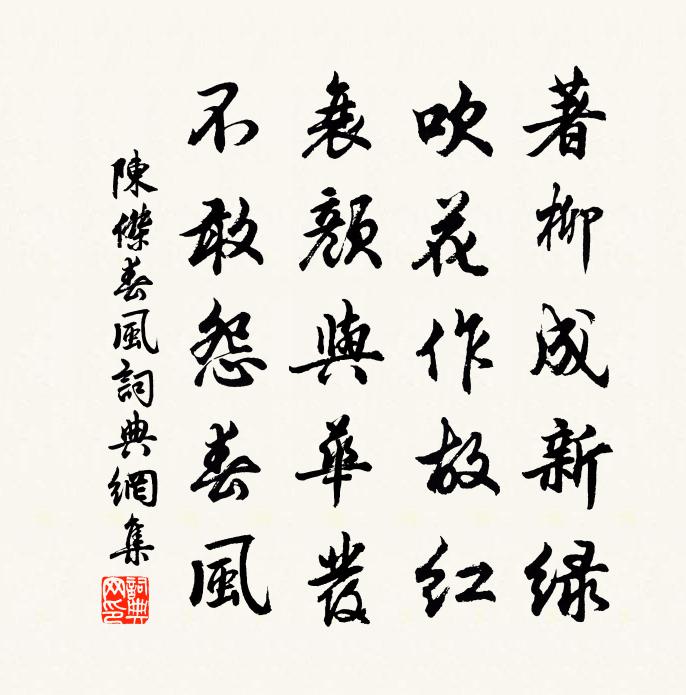 著柳成新绿
吹花作故红
衰顏與華髮
不敢怨春風
陳傑春風詞典網集
詞典网印